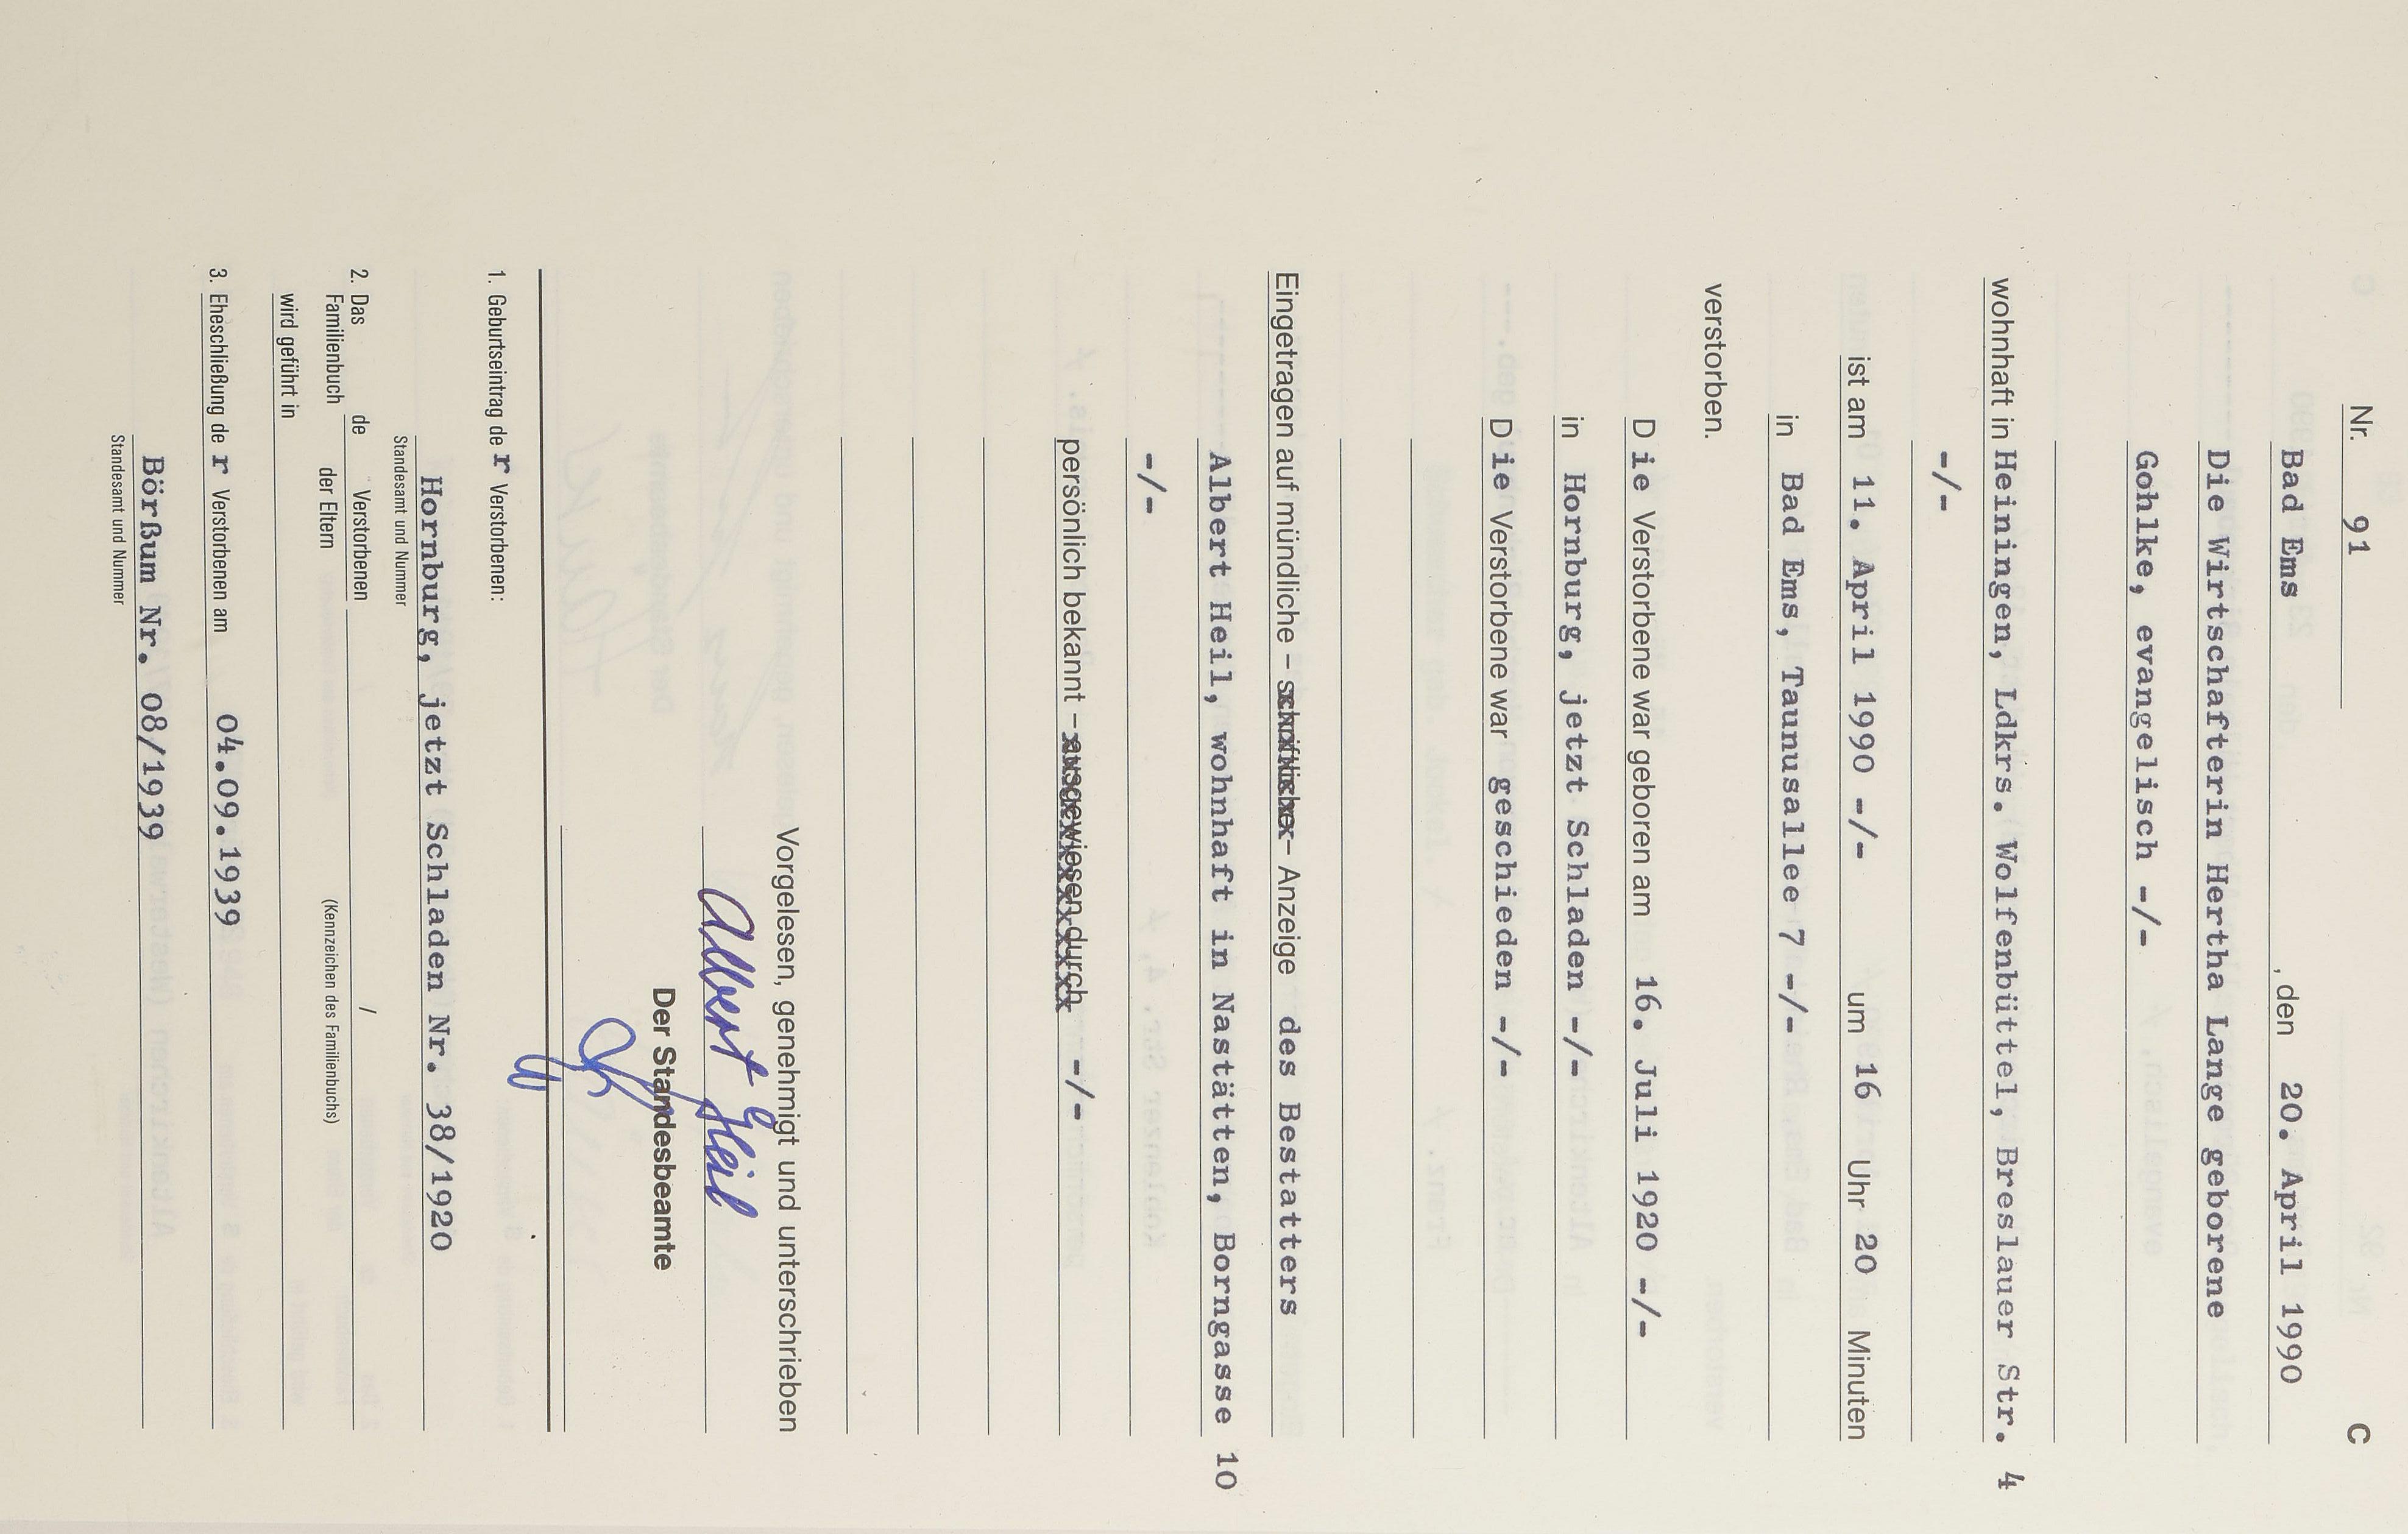 Nr. 91 C
Bad Ems , den 20. April 1990
Die Wirtschafterin Hertha Lange geborene
Gohlke, evangelisch -/-
wohnhaft in Heiningen, Ldkrs. Wolfenbüttel, Breslauer Str. 4
-/-
ist am 11. April 1990 -/- um 16 Uhr 20 Minuten
in Bad Ems, Taunusallee 7 -/-
verstorben.
Die Verstorbene war geboren am 16. Juli 1920 -/-
in Hornburg, jetzt Schladen -/-
Die Verstorbene war geschieden -/-
Eingetragen auf mündliche – schriftliche – Anzeige des Bestatters
Albert Heil, wohnhaft in Nastätten, Borngasse 10
-/-
persönlich bekannt – ausgewiesen durch -/-
Vorgelesen, genehmigt und unterschrieben
Albert Heil
Der Standesbeamte
1. Geburtseintrag der Verstorbenen:
Hornburg, jetzt Schladen Nr. 38/1920
Standesamt und Nummer
2. Das Familienbuch de Verstorbenen /
der Eltern (Kennzeichen des Familienbuchs)
wird geführt in
3. Eheschließung der Verstorbenen am 04.09.1939
Börßum Nr. 08/1939
Standesamt und Nummer